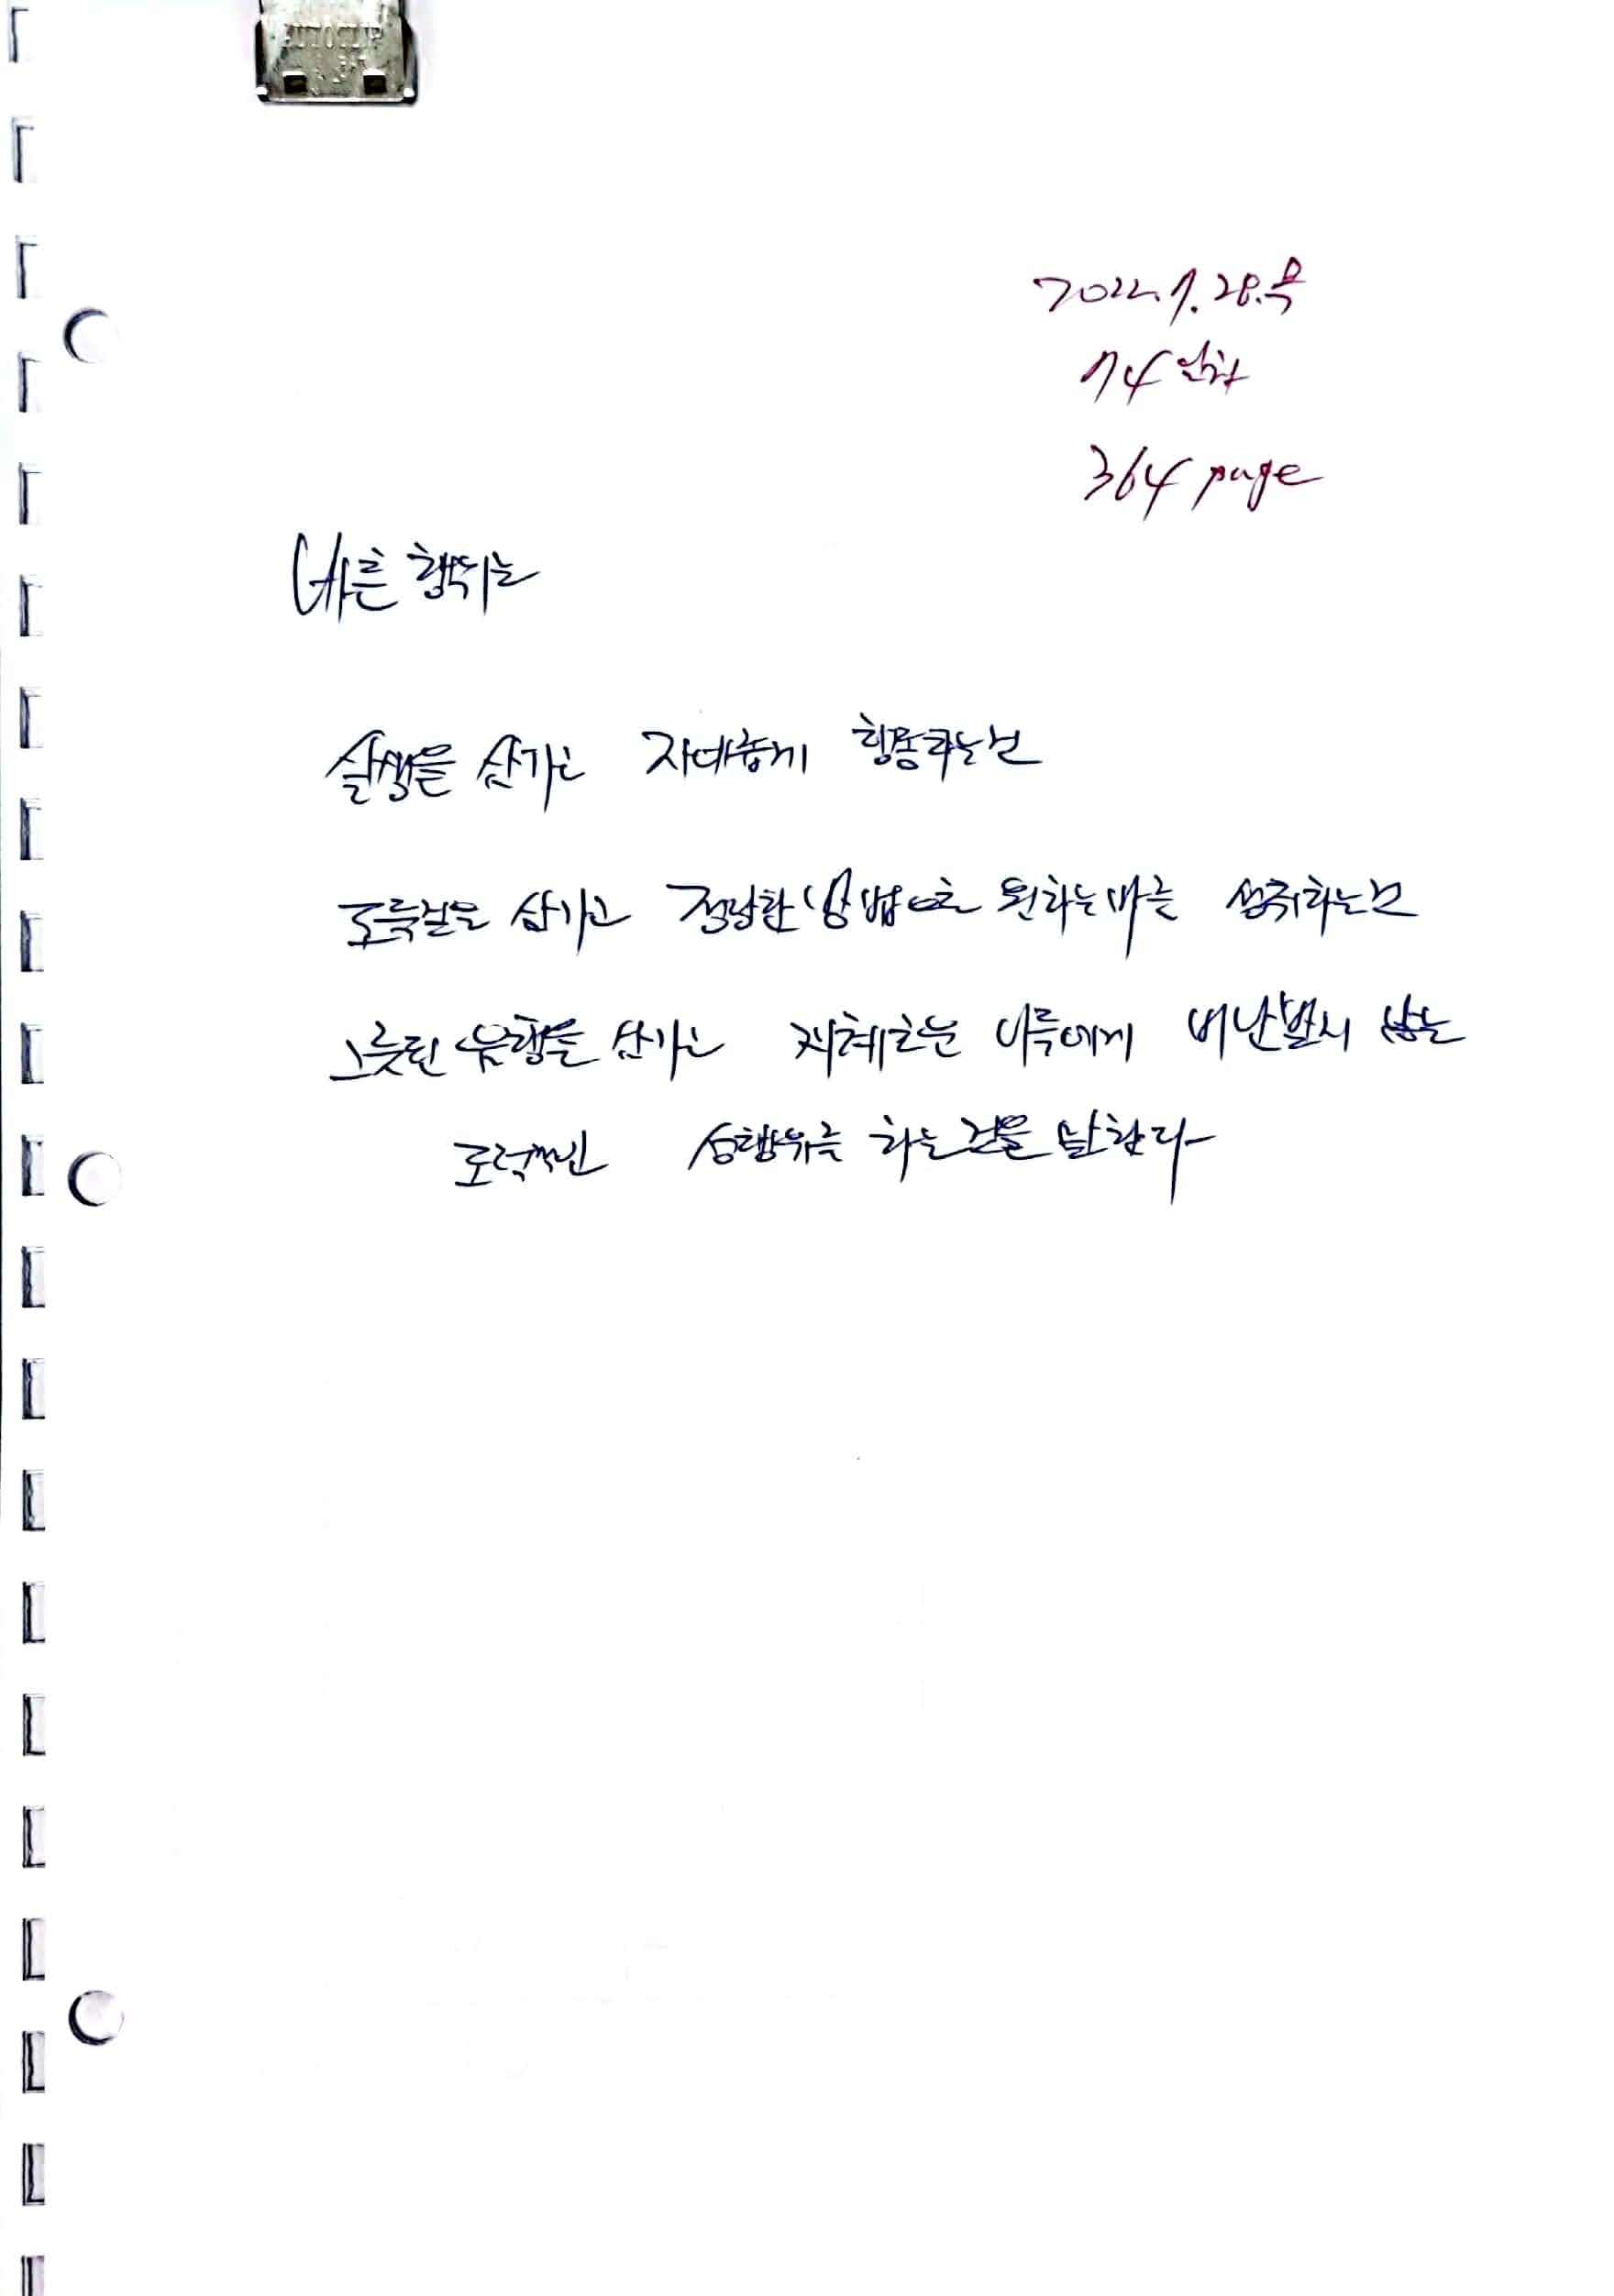 AUTOCLIP
2022.7.28.목
74일차
364 page
바른 행위는
살생을 삼가고 자애롭게 행동하는것
도둑질을 삼가고 정당한 방법으로 원하는바를 성취하는것
그릇된 음행을 삼가고 지혜로운 이들에게 비난받지 않는
도덕적인 성행위를 하는것을 말한다